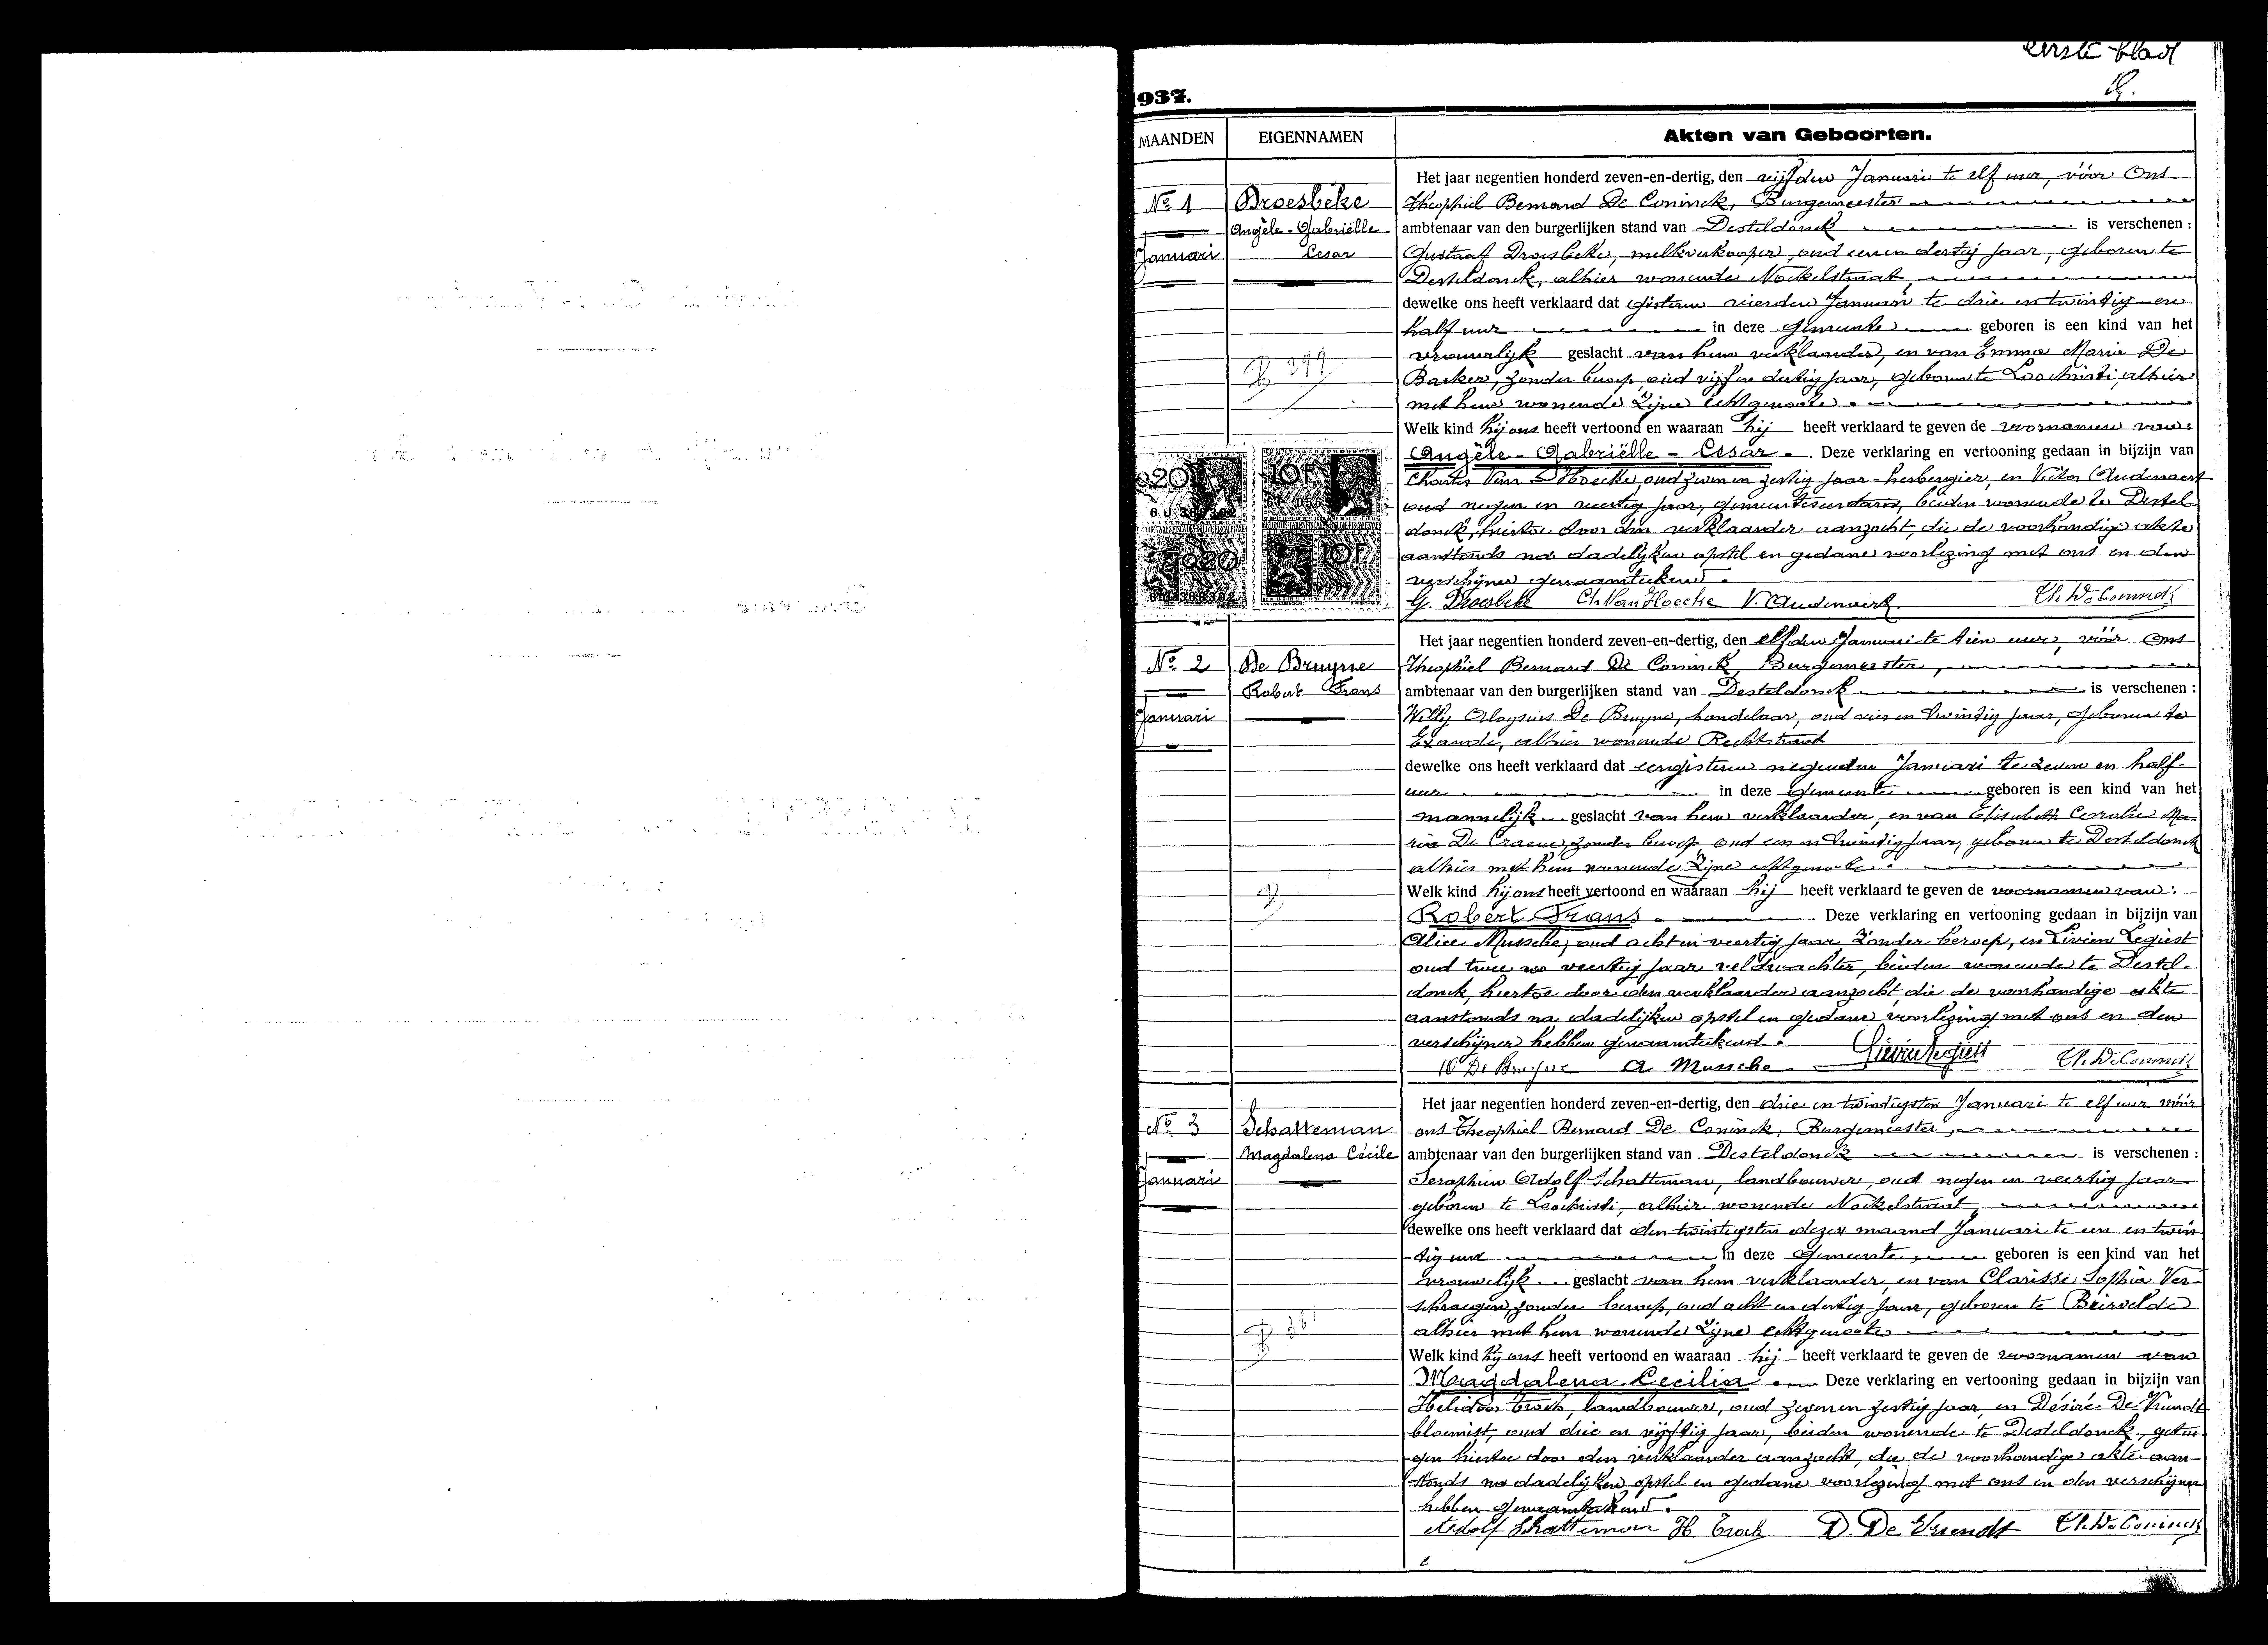 eerste blad
1937.
MAANDEN EIGENNAMEN Akten van Geboorten.
Het jaar negentien honderd zeven-en-dertig, den vijfden Januari te elf uur, vóór Ons
No 1 Droesbeke Theophiel Bernard De Coninck, Burgemeester
Angèle-Gabriëlle- ambtenaar van den burgerlijken stand van Desteldonck is verschenen :
Januari Cesar Gustaaf Droesbeke, melkverkooper, oud een en dertig jaar, geboren te
Desteldonck, alhier wonende Nockelstraat
dewelke ons heeft verklaard dat gisteren vierden Januari te drie en twintig en
half uur in deze gemeente geboren is een kind van het
vrouwelijk geslacht van hem verklaarder, en van Emma Maria De
Backer, zonder beroep, oud vijf en dertig jaar, geboren te Loochristi, alhier
met hem wonende zijne echtgenoote.
Welk kind hij ons heeft vertoond en waaraan hij heeft verklaard te geven de voornamen van:
Angèle-Gabriëlle-Cesar. Deze verklaring en vertooning gedaan in bijzijn van
Charles Van Hoecke, oud zeven en zestig jaar, herbergier, en Victor Audenaert
oud negen en veertig jaar, gemeentesecretaris, beiden wonende te Destel
donck, hiertoe door den verklaarder aanzocht, die de voorhandige akte
aanstonds na dadelijken opstel en gedane voorlezing met ons en den
verschijner genaamteekend.
G. Droesbeke Ch. Van Hoecke V. Audenaert Th. De Coninck
0.20 10F
0.20 10F
Het jaar negentien honderd zeven-en-dertig, den elfden Januari te tien uur, vóór Ons
No 2 De Bruyne Theophiel Bernard De Coninck, Burgemeester,
Robert Frans ambtenaar van den burgerlijken stand van Desteldonck is verschenen :
Januari Willy Aloysius De Bruyne, handelaar, oud vier en twintig jaar, geboren te
Exaarde, alhier wonende Rechtstraat
dewelke ons heeft verklaard dat eergisteren negenden Januari te zeven en half
uur in deze gemeente geboren is een kind van het
mannelijk geslacht van hem verklaarder, en van Elisabeth Coralie Ma-
ria De Craene, zonder beroep, oud een en twintig jaar, geboren te Desteldonck
alhier met hem wonende zijne echtgenoote.
Welk kind hij ons heeft vertoond en waaraan hij heeft verklaard te geven de voornamen van:
Robert Frans Deze verklaring en vertooning gedaan in bijzijn van
Alice Mussche, oud acht en veertig jaar, zonder beroep, en Livien Legiest
oud twee en veertig jaar veldwachter, beiden wonende te Destel-
donck, hiertoe door den verklaarder aanzocht, die de voorhandige akte
aanstonds na dadelijken opstel en gedane voorlezing met ons en den
verschijner hebben genaamteekend.
W De Bruyne A. Mussche Livien Legiest Th. De Coninck
Het jaar negentien honderd zeven-en-dertig, den drie en twintigsten Januari te elf uur vóór
No 3 Schatteman ons Theophiel Bernard De Coninck, Burgemeester,
Magdalena Cécile ambtenaar van den burgerlijken stand van Desteldonck is verschenen :
Januari Seraphien Adolf Schatteman, landbouwer, oud negen en veertig jaar
geboren te Loochristi, alhier wonende Nockelstraat
dewelke ons heeft verklaard dat den twintigsten dezer maand Januari te een en twin
tig uur in deze gemeente, geboren is een kind van het
vrouwelijk geslacht van hem verklaarder en van Clarisse Sophia Ver-
schraegen, zonder beroep, oud acht en dertig jaar, geboren te
alhier met hem wonende zijne echtgenoote
Welk kind hij ons heeft vertoond en waaraan hij heeft verklaard te geven de voornamen van
Magdalena Cecilia. Deze verklaring en vertooning gedaan in bijzijn van
Heliodoor Troch, landbouwer, oud zeven en zestig jaar, en Désiré De Vriendt
bloemist, oud drie en vijftig jaar, beiden wonende te Desteldonck, getui
gen hiertoe door den verklaarder aanzocht, die de voorhandige akte aan-
stonds na dadelijken opstel en gedane voorlezing met ons en den verschijner
hebben genaamteekend.
Adolf Schatteman H. Troch D. De Vriendt Th. De Coninck